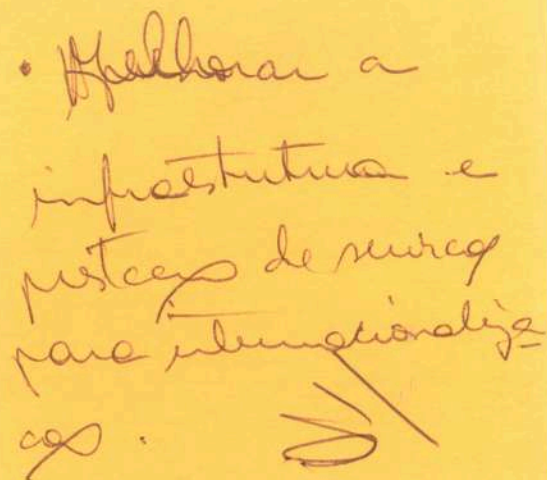 • Melhorar a
infraestrutura e
prestação de serviços
para internacionaliza
ção.